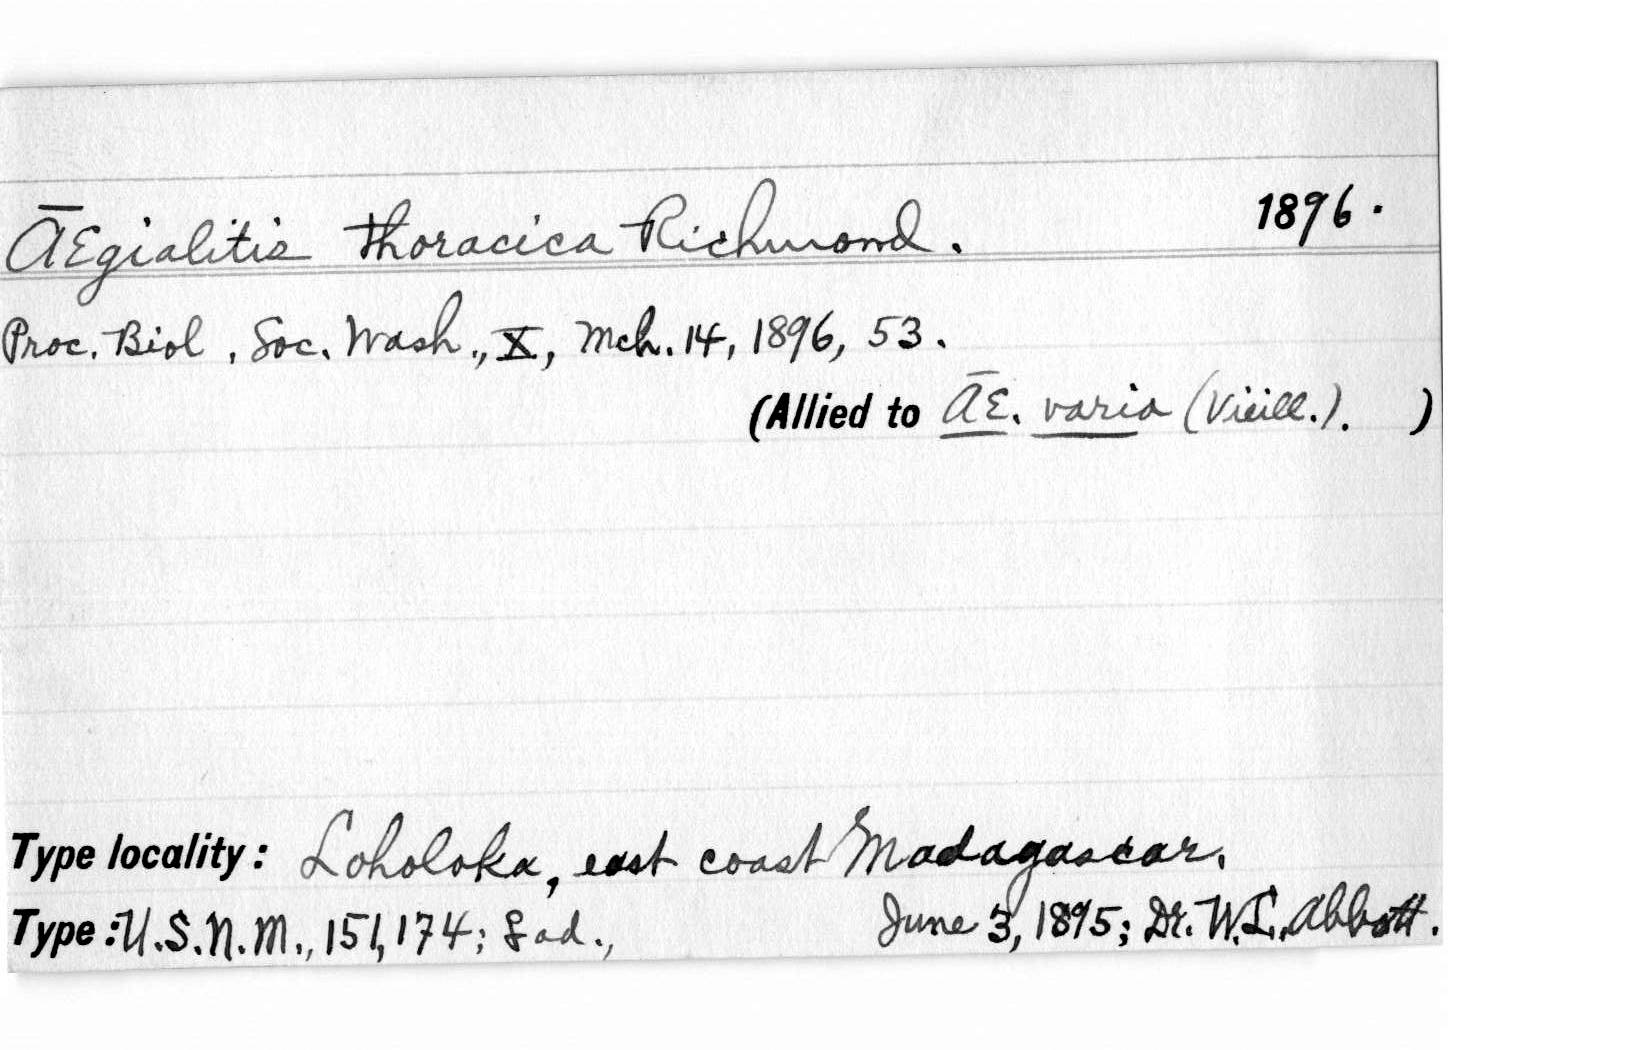 ĀEgialitis thoracica Richmond. 1896.
Proc. Biol, Soc. Wash., X, Mch. 14, 1896, 53.
(Allied to ĀE. varia (Vieill.). )
Type locality: Loholoka, east coast Madagascar.
Type: U.S.N.M., 151,174; ad., June 3, 1895; Dr. W.L. Abbott.